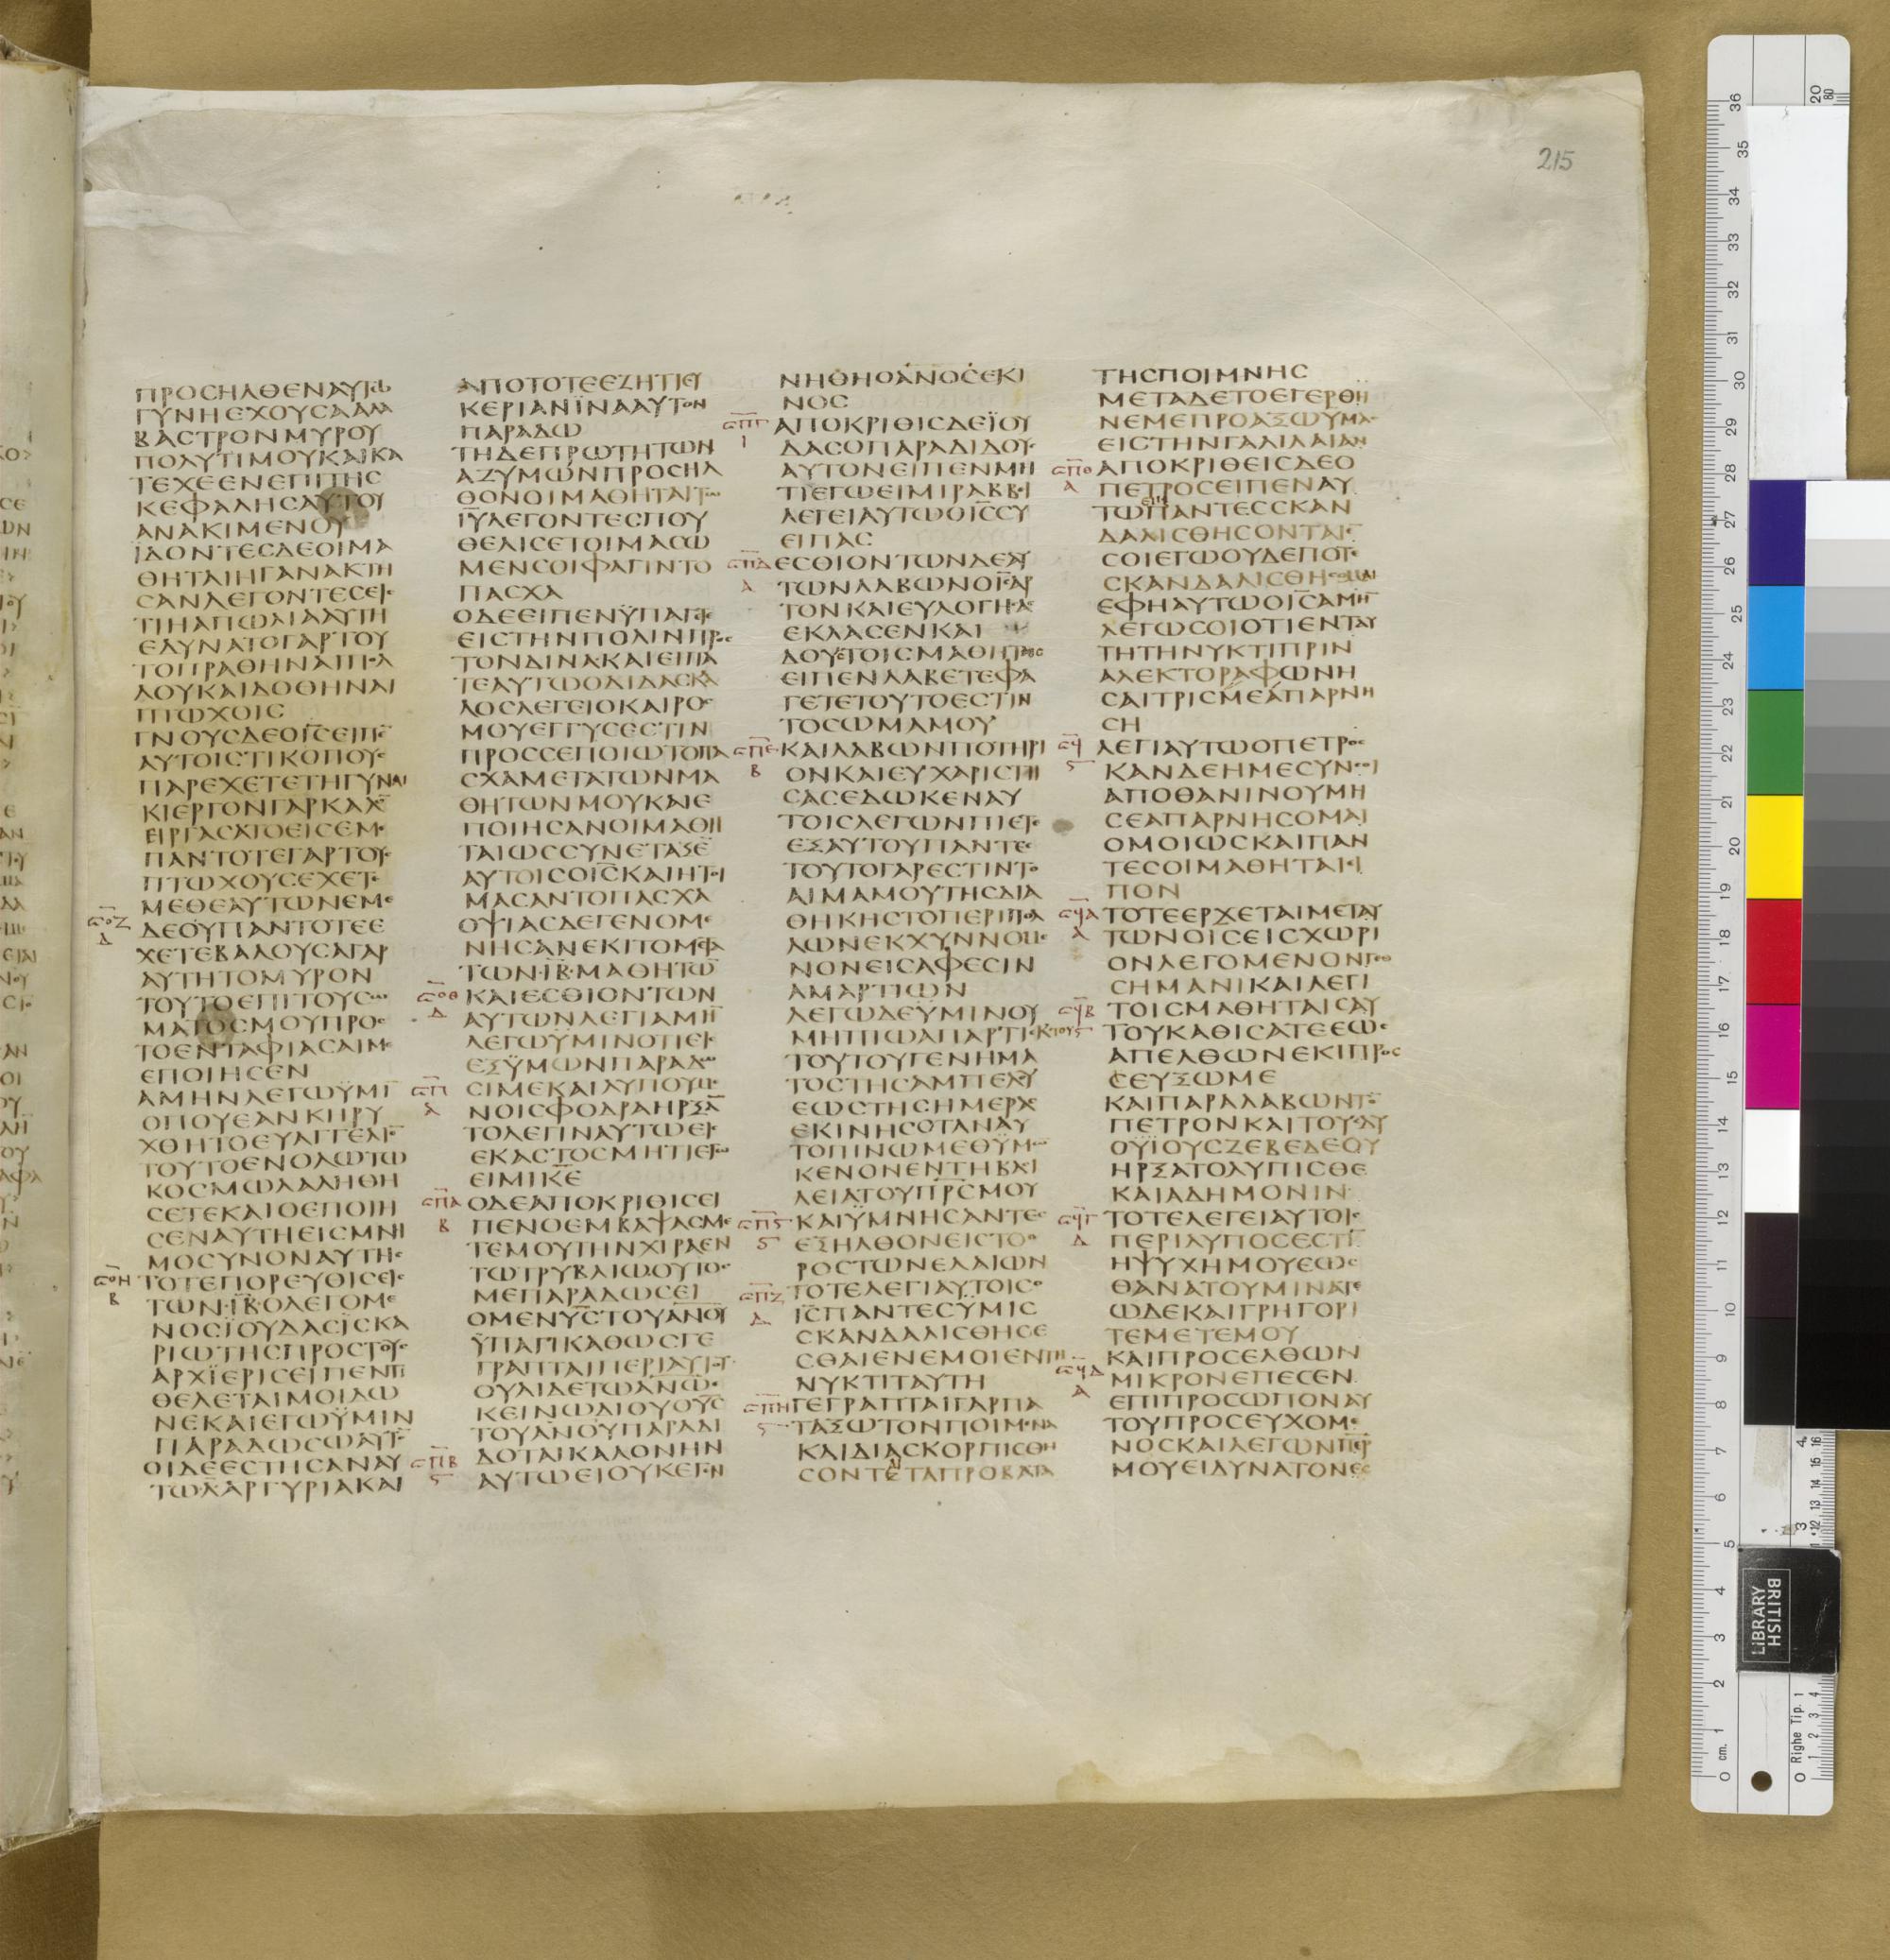 215
ΠΡΟCΗΛΘΕΝΑΥΤΩ
ΓΥΝΗΕΧΟΥCΑΑΛΑ
ΒΑCΤΡΟΝΜΥΡΟΥ
ΠΟΛΥΤΙΜΟΥΚΑΙΚΑ
ΤΕΧΕΕΝΕΠΙΤΗC
ΚΕΦΑΛΗCΑΥΤΟΥ
ΑΝΑΚΙΜΕΝΟΥ
ΪΔΟΝΤΕCΔΕΟΙΜΑ
ΘΗΤΑΙΗΓΑΝΑΚΤΗ
CΑΝΛΕΓΟΝΤΕCΕΙC
ΤΙΗΑΠΩΛΙΑΑΥΤΗ
ΕΔΥΝΑΤΟΓΑΡΤΟΥ
ΤΟΠΡΑΘΗΝΑΙΠΟΛ
ΛΟΥΚΑΙΔΟΘΗΝΑΙ
ΠΤΩΧΟΙC
ΓΝΟΥCΔΕΟΙ̅C̅ΕΙΠΕ̅
ΑΥΤΟΙCΤΙΚΟΠΟΥC
ΠΑΡΕΧΕΤΕΤΗΓΥΝΑΙ
ΚΙΕΡΓΟΝΓΑΡΚΑΛΟ̅
ΕΙΡΓΑCΑΤΟΕΙCΕΜΕ
ΠΑΝΤΟΤΕΓΑΡΤΟΥC
ΠΤΩΧΟΥCΕΧΕΤΕ
ΜΕΘΕΑΥΤΩΝΕΜΕ
ΔΕΟΥΠΑΝΤΟΤΕΕ
ΧΕΤΕΒΑΛΟΥCΑΓΑΡ
ΑΥΤΗΤΟΜΥΡΟΝ
ΤΟΥΤΟΕΠΙΤΟΥCΩ
ΜΑΤΟCΜΟΥΠΡΟC
ΤΟΕΝΤΑΦΙΑCΑΙΜΕ
ΕΠΟΙΗCΕΝ
ΑΜΗΝΛΕΓΩΫΜΙ̅
ΟΠΟΥΕΑΝΚΗΡΥ
ΧΘΗΤΟΕΥΑΓΓΕΛΙΟ̅
ΤΟΥΤΟΕΝΟΛΩΤΩ
ΚΟCΜΩΛΑΛΗΘΗ
CΕΤΕΚΑΙΟΕΠΟΙΗ
CΕΝΑΥΤΗΕΙCΜΝΗ
ΜΟCΥΝΟΝΑΥΤΗC
ΤΟΤΕΠΟΡΕΥΘΙCΕΙC
ΤΩΝ·ΙΒ·ΟΛΕΓΟΜΕ
ΝΟCΪΟΥΔΑCΪCΚΑ
ΡΙΩΤΗCΠΡΟCΤΟΥC
ΑΡΧΪΕΡΙCΕΙΠΕΝΤΙ
ΘΕΛΕΤΑΙΜΟΙΔΩ
ΝΕΚΑΙΕΓΩΫΜΙΝ
ΠΑΡΑΔΩCΩΑΥΤΟ̅
ΟΙΔΕΕCΤΗCΑΝΑΥ
ΤΩΛ̅ΑΡΓΥΡΙΑΚΑΙ
ΑΠΟΤΟΤΕΕΖΗΤΙΕΥ
ΚΕΡΙΑΝΪΝΑΑΥΤΟΝ
ΠΑΡΑΔΩ
ΤΗΔΕΠΡΩΤΗΤΩΝ
ΑΖΥΜΩΝΠΡΟCΗΛ
ΘΟΝΟΙΜΑΘΗΤΑΙΤΩ
Ι̅Υ̅ΛΕΓΟΝΤΕCΠΟΥ
ΘΕΛΙCΕΤΟΙΜΑCΩ
ΜΕΝCΟΙΦΑΓΙΝΤΟ
ΠΑCΧΑ
ΟΔΕΕΙΠΕΝΫΠΑΓΕΤΕ
ΕΙCΤΗΝΠΟΛΙΝΠΡΟC
ΤΟΝΔΙΝΑΚΑΙΕΙΠΑ
ΤΕΑΥΤΩΟΔΙΔΑCΚΑ
ΛΟCΛΕΓΕΙΟΚΑΙΡΟC
ΜΟΥΕΓΓΥCΕCΤΙΝ
ΠΡΟCCΕΠΟΙΩΤΟΠΑ
CΧΑΜΕΤΑΤΩΝΜΑ
ΘΗΤΩΝΜΟΥΚΑΙΕ
ΠΟΙΗCΑΝΟΙΜΑΘΗ
ΤΑΙΩCCΥΝΕΤΑΞΕ̅
ΑΥΤΟΙCΟΙ̅C̅ΚΑΙΗΤΟΙ
ΜΑCΑΝΤΟΠΑCΧΑ
ΟΨΙΑCΔΕΓΕΝΟΜΕ
ΝΗCΑΝΕΚΙΤΟΜΕΤΑ
ΤΩΝ·ΙΒ·ΜΑΘΗΤΩ̅
ΚΑΙΕCΘΙΟΝΤΩΝ
ΑΥΤΩΝΛΕΓΙΑΜΗ̅
ΛΕΓΩΫΜΙΝΟΤΙΕΙC
ΕΞΫΜΩΝΠΑΡΑΔΩ
CΙΜΕΚΑΙΛΥΠΟΥΜΕ
ΝΟΙCΦΟΔΡΑΗΡΞΑ̅
ΤΟΛΕΓΙΝΑΥΤΩΕΙC
ΕΚΑCΤΟCΜΗΤΙΕΓΩ
ΕΙΜΙΚ̅Ε̅
ΟΔΕΑΠΟΚΡΙΘΙCΕΙ
ΠΕΝΟΕΜΒΑΨΑCΜΕ
ΤΕΜΟΥΤΗΝΧΙΡΑΕΝ
ΤΩΤΡΥΒΛΙΩΟΥΤΟC
ΜΕΠΑΡΑΔΩCΕΙ
ΟΜΕΝΥ̅C̅ΤΟΥΑ̅Ν̅Ο̅Υ̅
ΫΠΑΓΙΚΑΘΩCΓΕ
ΓΡΑΠΤΑΙΠΕΡΙΑΥΤΟΥ
ΟΥΑΙΔΕΤΩΑ̅Ν̅Ω̅
ΚΕΙΝΩΔΙΟΥΟΥ̅C̅
ΤΟΥΑ̅Ν̅Ο̅Υ̅ΠΑΡΑΔΙ
ΔΟΤΑΙΚΑΛΟΝΗΝ
ΑΥΤΩΕΙΟΥΚΕΓΕΝ
ΝΗΘΗΟΑ̅Ν̅Ο̅C̅ΕΚΙ
ΝΟC
ΑΠΟΚΡΙΘΙCΔΕΪΟΥ
ΔΑCΟΠΑΡΑΔΙΔΟΥC
ΑΥΤΟΝΕΙΠΕΝΜΗ
ΤΙΕΓΩΕΙΜΙΡΑΒΒΕΙ
ΛΕΓΕΙΑΥΤΩΟΙ̅C̅CΥ
ΕΙΠΑC
ΕCΘΙΟΝΤΩΝΔΕΑΥ
ΤΩΝΛΑΒΩΝΟΙ̅C̅ΑΡ
ΤΟΝΚΑΙΕΥΛΟΓΗCΑC
ΕΚΛΑCΕΝΚΑΙ
ΔΟΥCΤΟΙCΜΑΘΗΤΑΙC
ΕΙΠΕΝΛΑΒΕΤΕΦΑ
ΓΕΤΕΤΟΥΤΟΕCΤΙΝ
ΤΟCΩΜΑΜΟΥ
ΚΑΙΛΑΒΩΝΠΟΤΗΡΙ
ΟΝΚΑΙΕΥΧΑΡΙCΤΗ
CΑCΕΔΩΚΕΝΑΥ
ΤΟΙCΛΕΓΩΝΠΙΕΤΕ
ΕΞΑΥΤΟΥΠΑΝΤΕC
ΤΟΥΤΟΓΑΡΕCΤΙΝΤΟ
ΑΙΜΑΜΟΥΤΗCΔΙΑ
ΘΗΚΗCΤΟΠΕΡΙΠΟΛ
ΛΩΝΕΚΧΥΝΝΟΜΕ
ΝΟΝΕΙCΑΦΕCΙΝ
ΑΜΑΡΤΙΩΝ
ΛΕΓΩΔΕΫΜΙΝΟΥ
ΜΗΠΙΩΑΠΑΡΤΙΕΚ
ΤΟΥΤΟΥΓΕΝΗΜΑ
ΤΟCΤΗCΑΜΠΕΛΟΥ
ΕΩCΤΗCΗΜΕΡΑC
ΕΚΙΝΗCΟΤΑΝΑΥ
ΤΟΠΙΝΩΜΕΘΫΜΩ
ΚΕΝΟΝΕΝΤΗΒΑCΙ
ΛΕΙΑΤΟΥΠ̅Ρ̅C̅ΜΟΥ
ΚΑΙΫΜΝΗCΑΝΤΕC
ΕΞΗΛΘΟΝΕΙCΤΟΟ
ΡΟCΤΩΝΕΛΑΙΩΝ
ΤΟΤΕΛΕΓΙΑΥΤΟΙCΟ
Ι̅C̅ΠΑΝΤΕCΫΜΙC
CΚΑΝΔΑΛΙCΘΗCΕ
CΘΑΙΕΝΕΜΟΙΕΝΤΗ
ΝΥΚΤΙΤΑΥΤΗ
ΓΕΓΡΑΠΤΑΙΓΑΡΠΑ
ΤΑΞΩΤΟΝΠΟΙΜΕΝΑ
ΚΑΙΔΙΑCΚΟΡΠΙCΘΗ
CΟΝΤΕΤΑΠΡΟΒΑΤΑ
ΤΗCΠΟΙΜΝΗC
ΜΕΤΑΔΕΤΟΕΓΕΡΘΗ
ΝΕΜΕΠΡΟΑΞΩΫΜΑC
ΕΙCΤΗΝΓΑΛΙΛΑΙΑΝ
ΑΠΟΚΡΙΘΕΙCΔΕΟ
ΠΕΤΡΟCΕΙΠΕΝΑΥ
ΤΩΠΑΝΤΕCCΚΑΝ
ΔΑΛΙCΘΗCΟΝΤΑΙΕ̅
CΟΙΕΓΩΟΥΔΕΠΟΤΕ
CΚΑΝΔΑΛΙCΘΗCΟΜΑΙ
ΕΦΗΑΥΤΩΟΙ̅C̅ΑΜΗ̅
ΛΕΓΩCΟΙΟΤΙΕΝΤΑΥ
ΤΗΤΗΝΥΚΤΙΠΡΙΝ
ΑΛΕΚΤΟΡΑΦΩΝΗ
CΑΙΤΡΙCΜΕΑΠΑΡΝΗ
CΗ
ΛΕΓΙΑΥΤΩΟΠΕΤΡΟC
ΚΑΝΔΕΗΜΕCΥΝCΟΙ
ΑΠΟΘΑΝΙΝΟΥΜΗ
CΕΑΠΑΡΝΗCΟΜΑΙ
ΟΜΟΙΩCΚΑΙΠΑΝ
ΤΕCΟΙΜΑΘΗΤΑΙΕΙ
ΠΟΝ
ΤΟΤΕΕΡΧΕΤΑΙΜΕΤΑΥ
ΤΩΝΟΙ̅C̅ΕΙCΧΩΡΙ
ΟΝΛΕΓΟΜΕΝΟΝΓΕΘ
CΗΜΑΝΙΚΑΙΛΕΓΙ
ΤΟΙCΜΑΘΗΤΑΙCΑΥ
ΤΟΥΚΑΘΙCΑΤΕΕΩC
ΑΠΕΛΘΩΝΕΚΙΠΡΟC
CΕΥΞΩΜΕ
ΚΑΙΠΑΡΑΛΑΒΩΝΤΟ̅
ΠΕΤΡΟΝΚΑΙΤΟΥCΔΥ
ΟΫΪΟΥCΖΕΒΕΔΕΟΥ
ΗΡΞΑΤΟΛΥΠΙCΘΕ
ΚΑΙΑΔΗΜΟΝΙΝ
ΤΟΤΕΛΕΓΕΙΑΥΤΟΙC
ΠΕΡΙΛΥΠΟCΕCΤΙ̅
ΗΨΥΧΗΜΟΥΕΩC
ΘΑΝΑΤΟΥΜΙΝΑΤΕ
ΩΔΕΚΑΙΓΡΗΓΟΡΙ
ΤΕΜΕΤΕΜΟΥ
ΚΑΙΠΡΟCΕΛΘΩΝ
ΜΙΚΡΟΝΕΠΕCΕΝ
ΕΠΙΠΡΟCΩΠΟΝΑΥ
ΤΟΥΠΡΟCΕΥΧΟΜΕ
ΝΟCΚΑΙΛΕΓΩΝΠ̅Ε̅Ρ̅
ΜΟΥΕΙΔΥΝΑΤΟΝΕC
BRITISH
LIBRARY